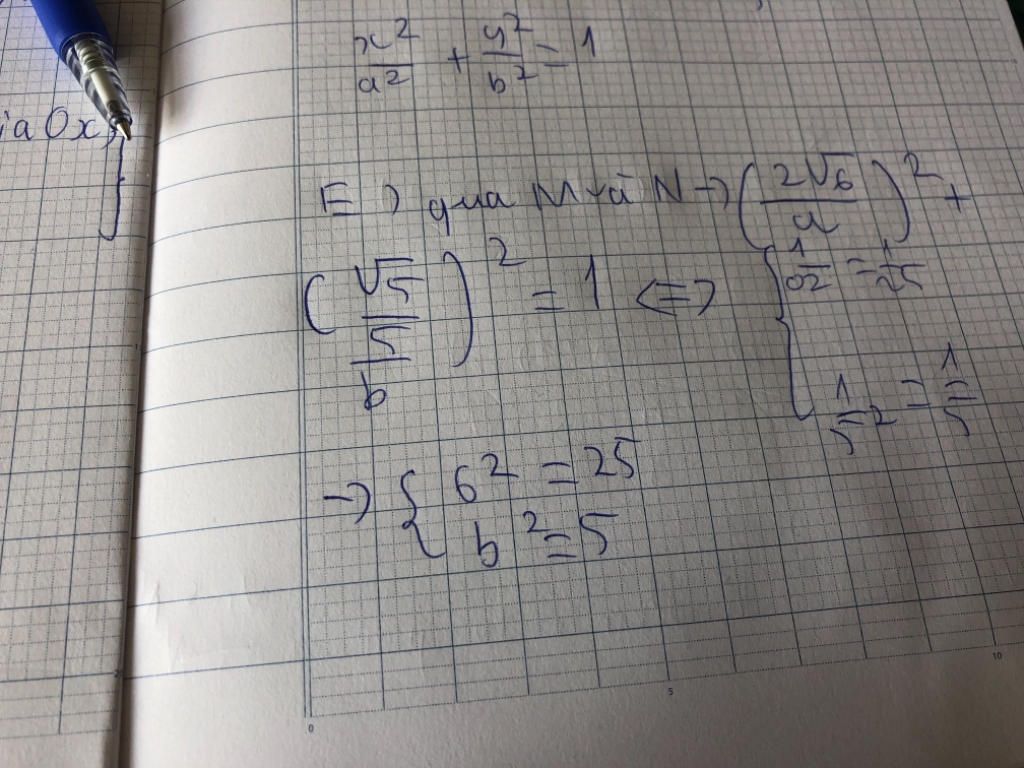 ia Ox,
x²/a² + y²/b² = 1
E) qua M và N → (2√6/a)² +
(√5/5/b)² = 1 ⇔ { 1/a² = 1/25
1/5² = 1/5
→ { 6² = 25
b² = 5
0 5 10